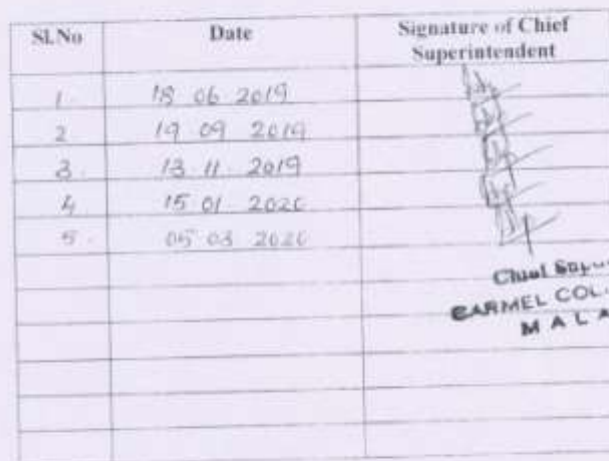 Sl.No Date Signature of Chief Superintendent
1. 18 06 2019
2 19 09 2019
3. 13 11 2019
4 15 01 2020
5. 05 03 2020
Chief
CARMEL COL
MALA